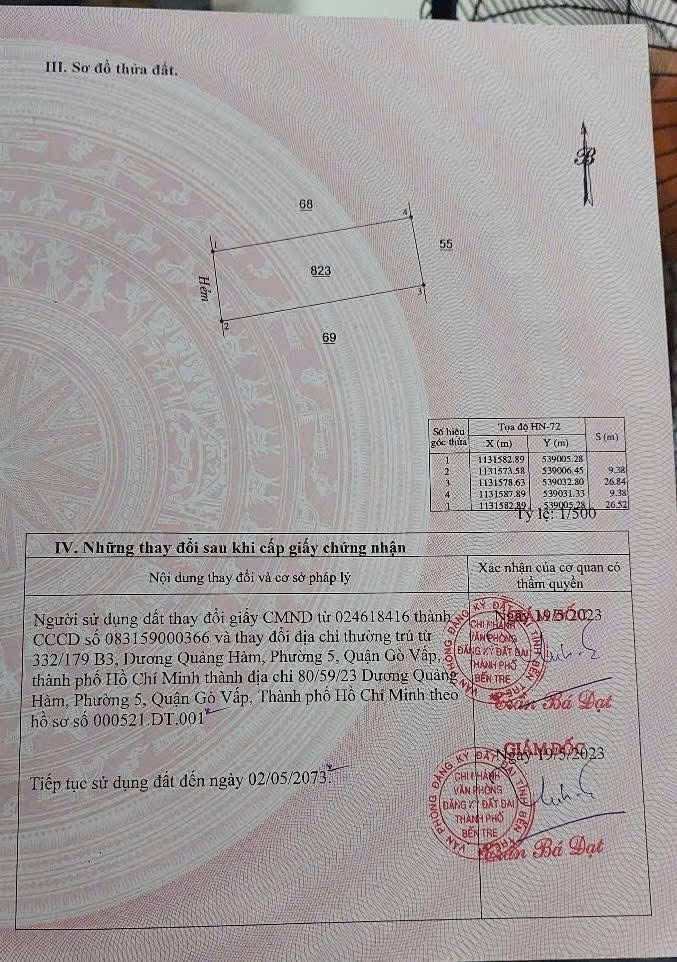 III. Sơ đồ thửa đất.
B
68
4
1
55
823
Hẻm
3
2
69
Số hiệu góc thửa Tọa độ HN-72 S (m)
X (m) Y (m)
1 1131582.89 539005.28
2 1131573.58 539006.45 9.38
3 1131578.63 539032.80 26.84
4 1131587.89 539031.33 9.38
1 1131582.89 539005.28 26.52
Tỷ lệ: 1/500
IV. Những thay đổi sau khi cấp giấy chứng nhận
Nội dung thay đổi và cơ sở pháp lý
Xác nhận của cơ quan có
thẩm quyền
Người sử dụng đất thay đổi giấy CMND từ 024618416 thành
CCCD số 083159000366 và thay đổi địa chỉ thường trú từ
332/179 B3, Dương Quảng Hàm, Phường 5, Quận Gò Vấp,
thành phố Hồ Chí Minh thành địa chỉ 80/59/23 Dương Quảng
Hàm, Phường 5, Quận Gò Vấp, Thành phố Hồ Chí Minh theo
hồ sơ số 000521.DT.001
Ngày 19/5/2023
GIÁM ĐỐC
VĂN PHÒNG ĐĂNG KÝ ĐẤT ĐAI TỈNH BẾN TRE
CHI NHÁNH
VĂN PHÒNG
ĐĂNG KÝ ĐẤT ĐAI
THÀNH PHỐ
BẾN TRE
Trần Bá Đạt
Tiếp tục sử dụng đất đến ngày 02/05/2073.
GIÁM ĐỐC
Ngày 19/5/2023
VĂN PHÒNG ĐĂNG KÝ ĐẤT ĐAI TỈNH BẾN TRE
CHI NHÁNH
VĂN PHÒNG
ĐĂNG KÝ ĐẤT ĐAI
THÀNH PHỐ
BẾN TRE
Trần Bá Đạt